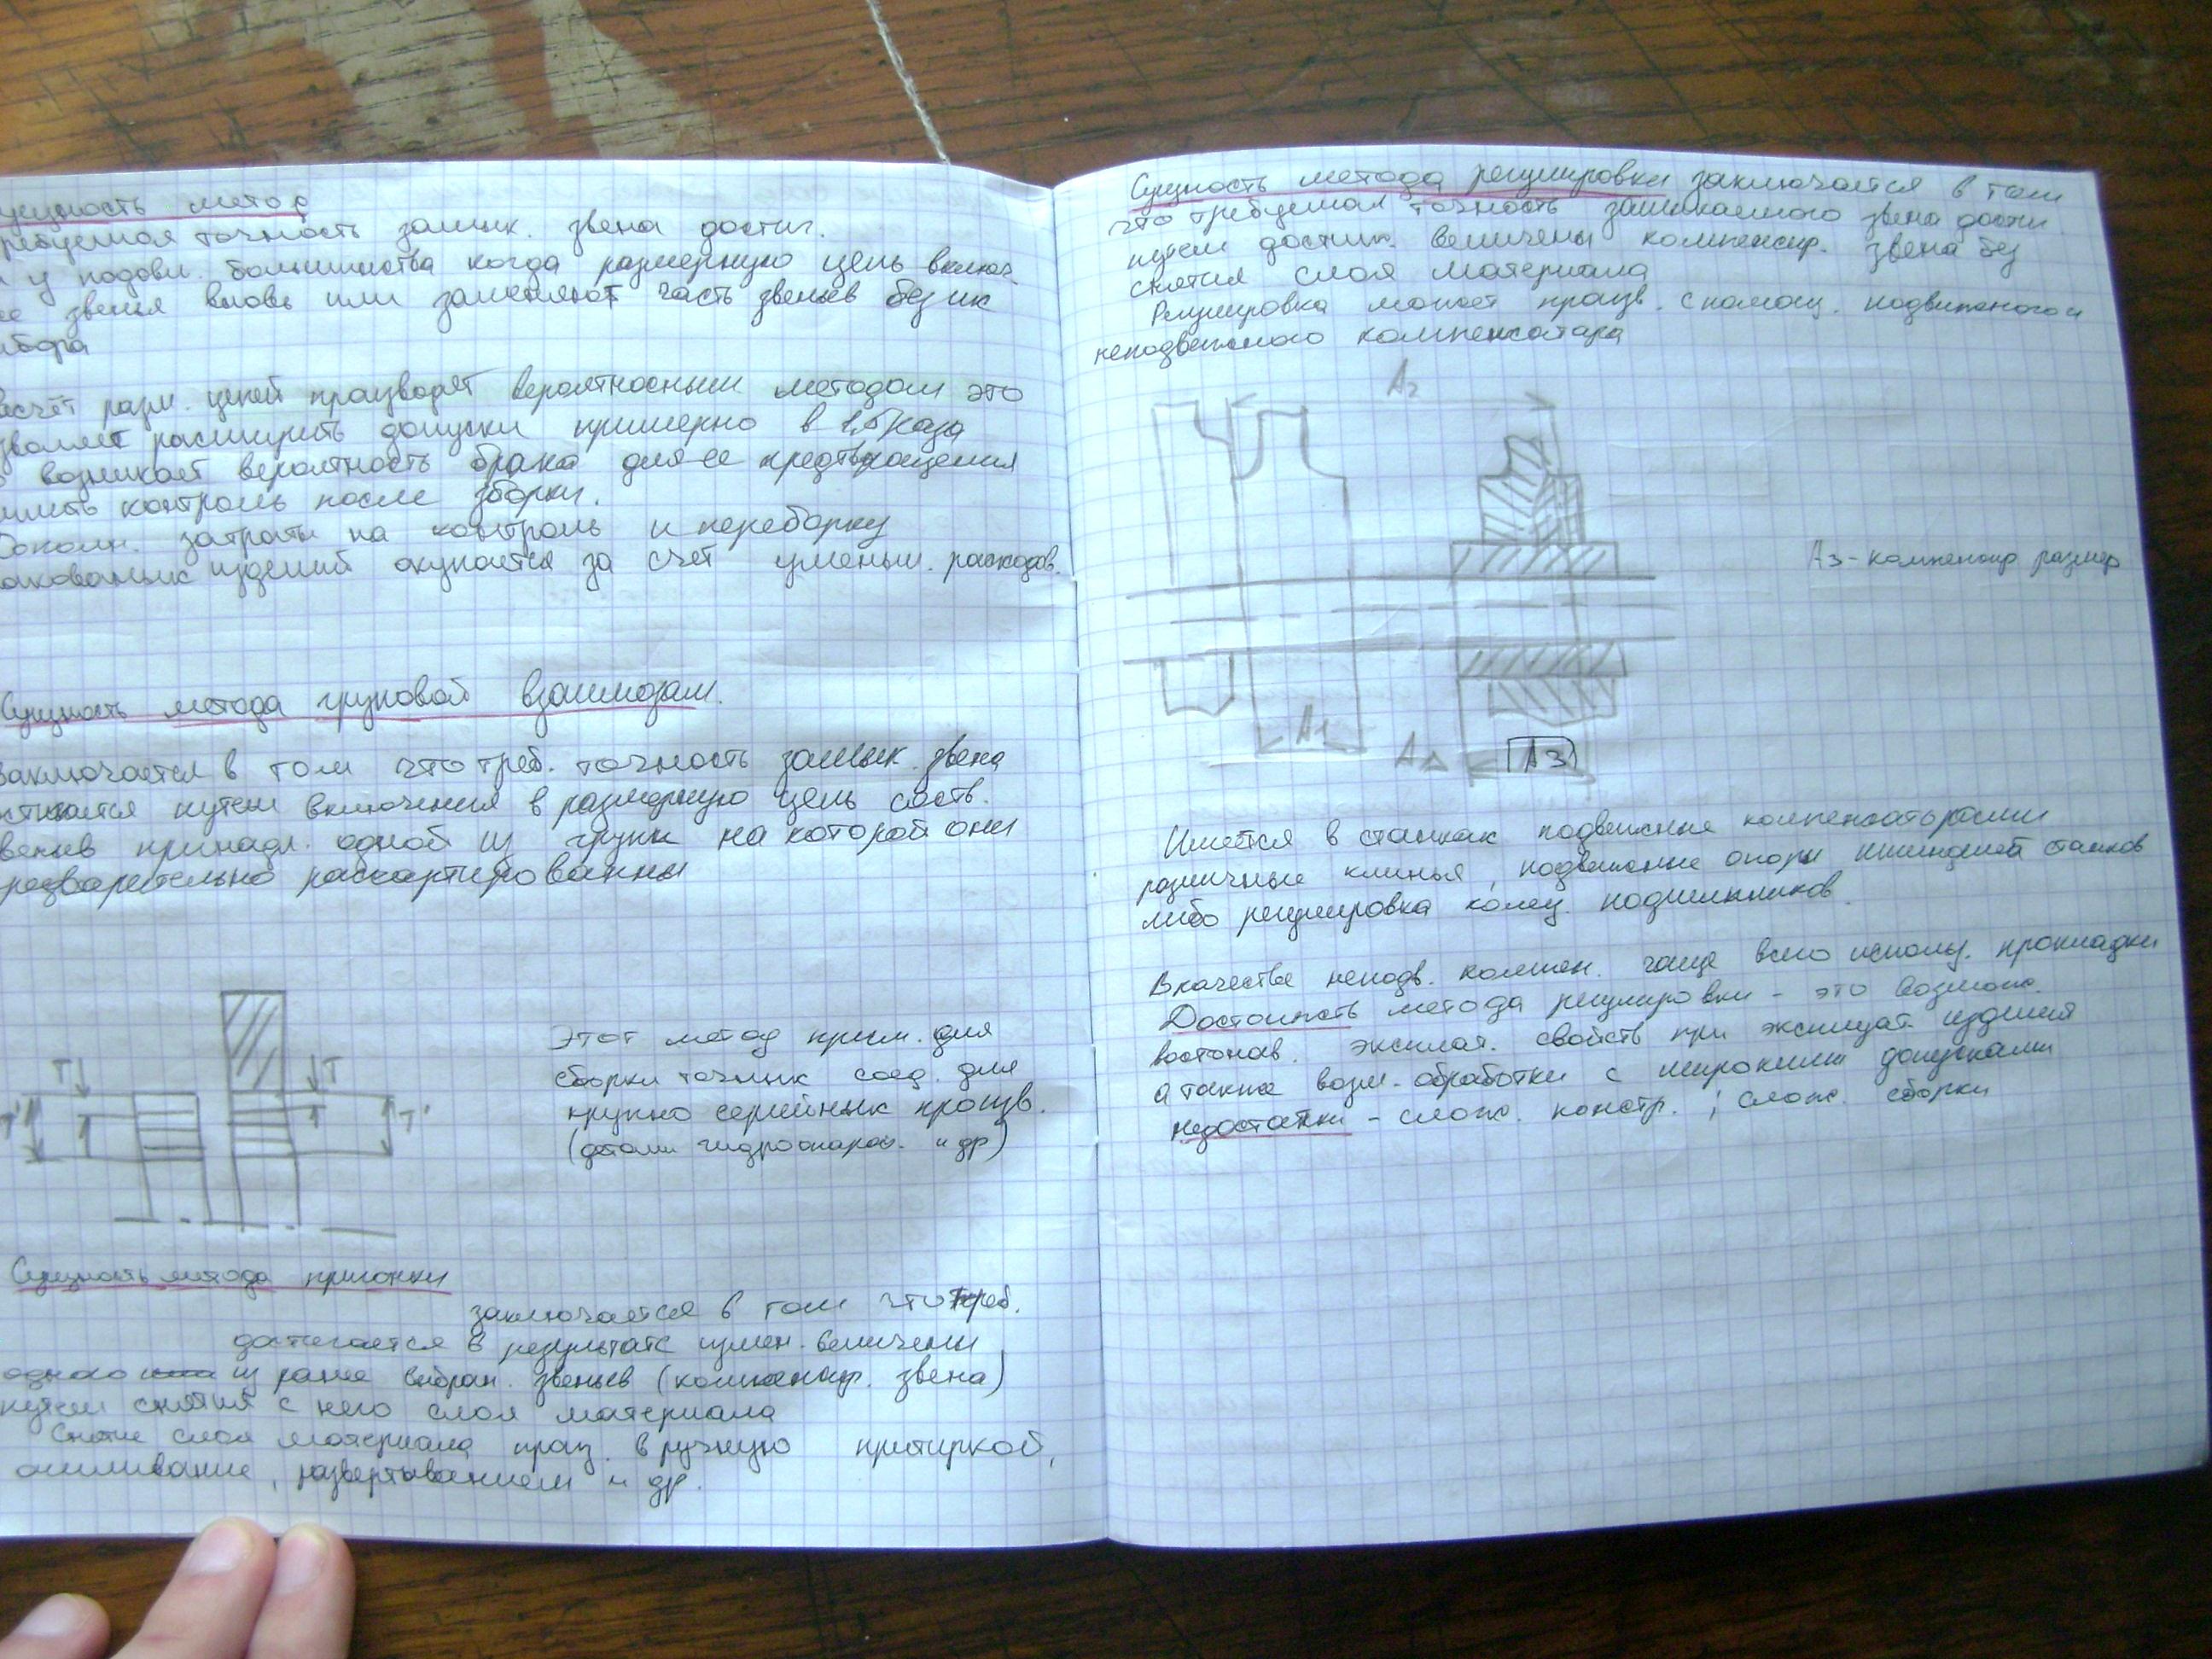 метод
точность замык. звена достиг.
у подовл. большинства когда размерную цепь включ.
звенья вновь или заменяют часть звеньев без их
разм. цепей производят вероятносным методом это
расширить допуски примерно в 1,5 раза
возникает вероятность брака для ее предтвращения
контроль после зборки.
затраты на контроль и переборку
изделий окупается за счет уменьш. расходов.
Сущность метода груповой взаимозам.
заключается в том что треб. точность замык. звена
путем включения в размерную цепь сост.
принадл. одной из групп на которой они
рассартированны
T T
T' T'
Этот метод прим. для
сборки точных соед. для
крупно серийных произв.
(детали гидроапарат. и др)
Сущность метода пригонки
заключается в том что треб.
достигается в результате измен. величены
одного из ранее выбран. звеньев (компенсир. звена)
путем снятия с него слоя материала
Снятие слоя материала приз. в ручную притиркой,
опиливание, развертыванием и др.
Сущность метода регулировки заключается в том
что требуемая точность замыкаемого звена дости
путем достиж. величены компенсир. звена без
снятия слоя материала
Регулировка может произв. с помощ. подвижного и
неподвижного компенсатара
A2
A3 - компенсир размер
A1
AΔ A3
Имеётся в станках подвижные компенсаторами
различные клинья, подвижные опоры шпинделей станков
либо регулировка колец подшипников.
В качестве неподв. компен. чаще всего использ. прокладки
Достоиность метода регулировки - это возмож.
востонав. эксплат. свойств при эксплуат. изделия
а также возм. обработки с широкими допусками
недостатки - слож. констр.; слож. сборки